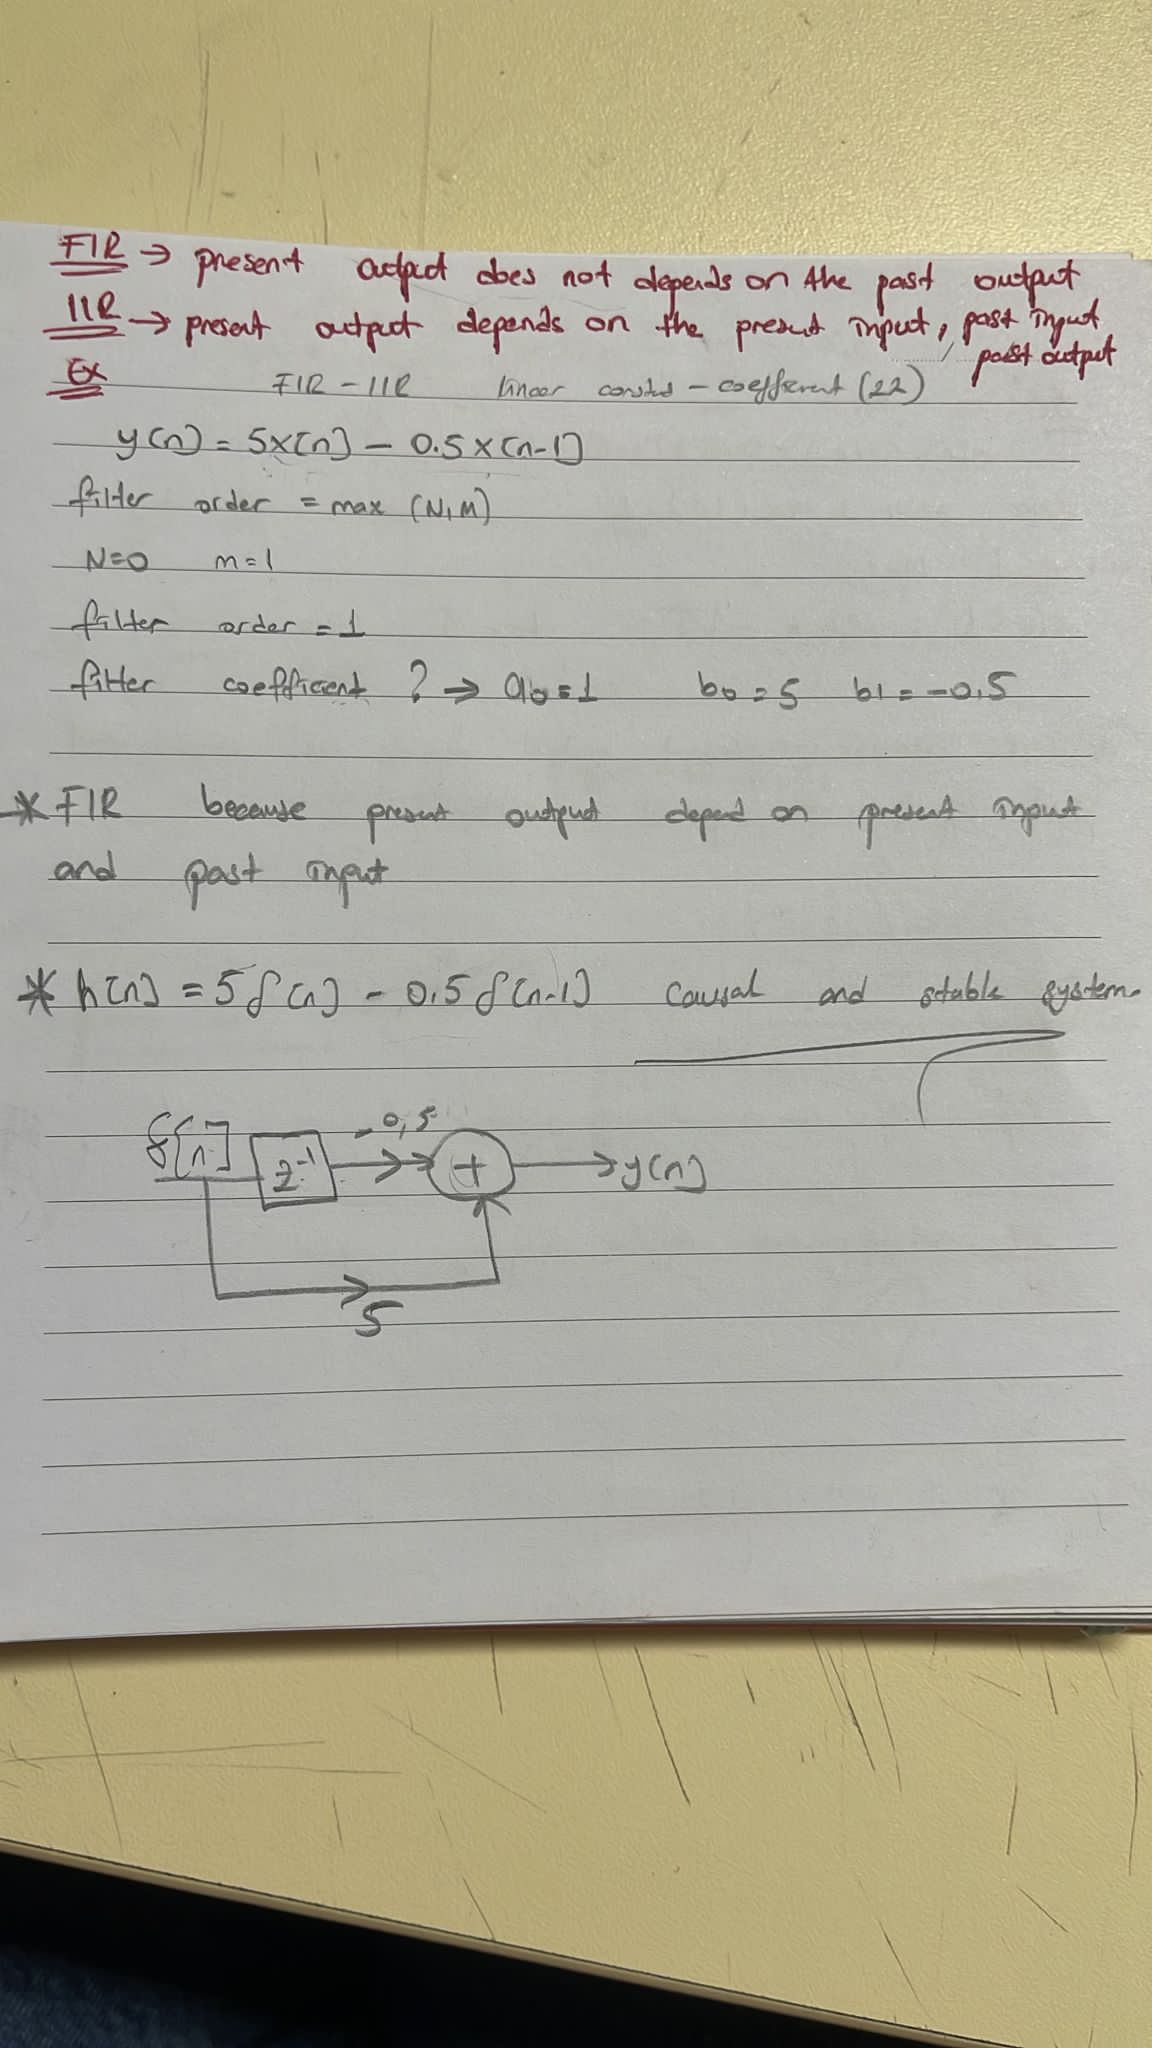 FIR → present output does not depends on the past output
IIR → present output depends on the present input, past input
past output
Ex
FIR - IIR linear - coefficient (22)
y(n) = 5x[n] - 0.5x[n-1]
filter order = max (N,M)
N=0 m=1
filter order = 1
filter coefficient ? → a0=1 b0=5 b1=-0.5
* FIR because present output depend on present input
and past input
* h[n] = 5δ[n] - 0.5δ[n-1] causal and stable system.
δ[n] z⁻¹ -0,5 + y(n)
5